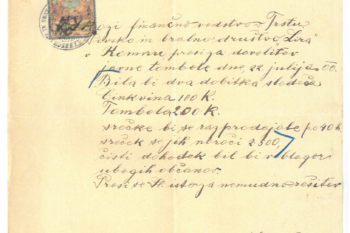 finančno vodstvo Trstu
in bralno društvo „Lira"
v Kamnu prosi za dovolitev
javne tombole dne 22 julija
Bila bi dva dobitka sledeča
Cinkvina 100 K.
Tombola 200 K.
srečke bi se razprodajale po 20 h.
sreček se jih naroči 2500,
čisti dohodek bil bi v blagor
ubogih občanov.
Prosi se za nemudno rešitev